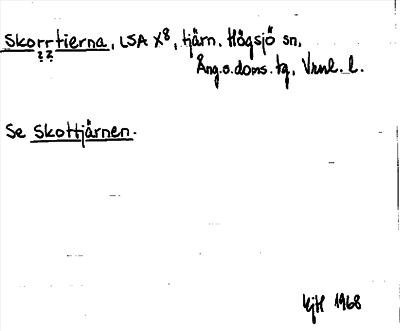 Skorrtierna, LSA X8, tjärn. Högsjö sn,
Ång.s.doms.tg, Vrnl. l.
Se Skottjärnen.
EjH 1968